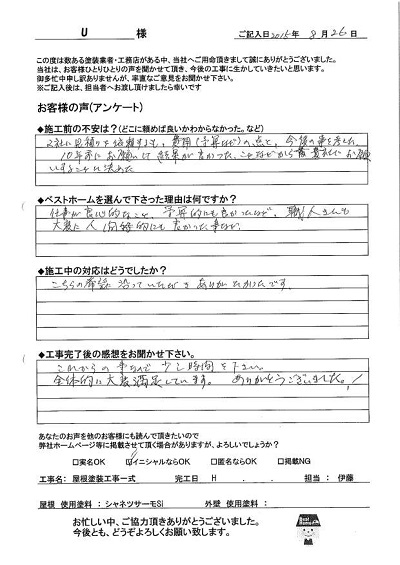 U 様 ご記入日 2015年 8月26日
この度は数ある塗装業者・工務店がある中、当社へご用命頂きまして誠にありがとうございました。
当社は、お客様ひとりひとりの声を聞かせて頂き、今後の工事に生かしていきたいと思います。
御多忙中申し訳ありませんが、率直なご意見をお聞かせ下さい。
※ご記入後は、担当者へお渡し頂けましたら幸いです
お客様の声(アンケート)
◆施工前の不安は?(どこに頼めば良いかわからなかった。など)
2社に見積りを依頼しても、費用(予算など)の点と、今後の事を考え
10年前にお願いして結果が良かった
いすることに決めた
◆ベストホームを選んで下さった理由は何ですか?
仕事が良心的なこと、予算的にも良かったなど、職人さんも
大変に人間的にも良かった事など。
◆施工中の対応はどうでしたか?
こちらの希望に沿っていただき ありがたかったです。
◆工事完了後の感想をお聞かせ下さい。
これからの事なので少し時間を下さい。
全体的に大変満足しています。 ありがとうございました。!
あなたのお声を他のお客様にも読んで頂きたいので
弊社ホームページ等に掲載させて頂く場合がありますが、よろしいでしょうか?
□実名OK ☑イニシャルならOK □匿名ならOK □掲載NG
工事名: 屋根塗装工事一式 完工日 H . . 担当: 伊藤
屋根 使用塗料: シャネツサーモSi 外壁 使用塗料:
お忙しい中、ご協力頂きありがとうございました。
今後とも、どうぞよろしくお願い致します。